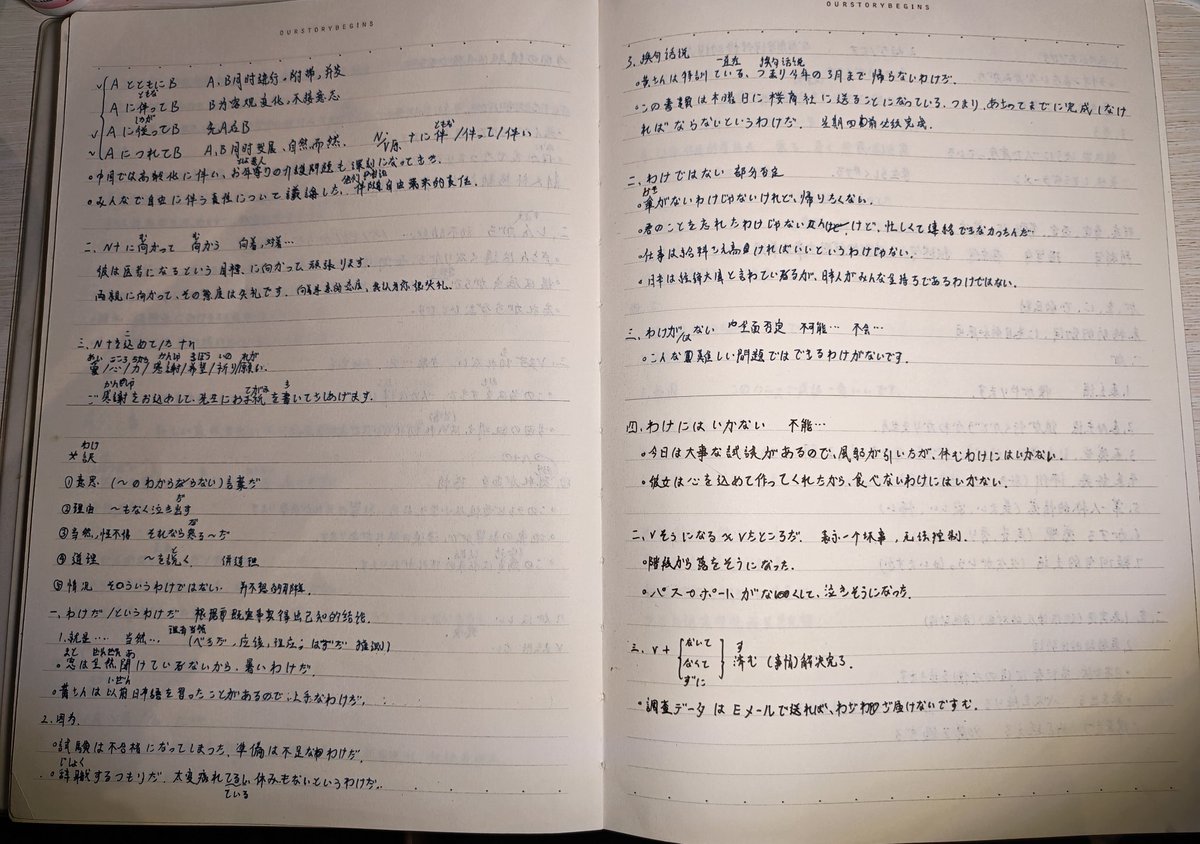 OURSTORYBEGINS
∨ A とともに B A、B同时进行。附带,并发
ともな
A に伴って B B为客观变化,不接意志
しのが
∨ A に従って B 先A后B
∨ A につれて B A、B同时发展,自然而然. N. V原. +に伴/伴って/伴い
ともな
中国では高齢化に伴い、お年寄りの介護問題も深刻になってきた.
みんなで自由に伴う責任について議論した. 伴随自由带来的责任.
二、N+に向かって 向から 向着,对着…
む む
彼は医者になるという目標に向かって頑張ります.
両親に向かって、その態度は失礼です.
三、N+を込めて/た+n
こ
愛/心/力/感謝/希望/祈り/願い.
あい こころ ちから かんしゃ きぼう いの ねが
ご感謝をお込めして、先生にお手紙を書いてもらあげます.
かんしゃ てがみ
わけ
* 訳
①意思 (〜のわからならない)言葉だ
②理由 〜もなく泣き出す
だ
③当然,怪不得 それなら寒る〜だ
④道理 〜を説く. 讲道理
と
⑤情况 そのういうわけではない.
一、わけだ/というわけだ 根据既定事实得出已知的结论.
1.就是… 当然… 理者当然 (べきだ,应该,理应; はずだ 推测)
まど ぜんぜん あ
窓は全然開けていないから、暑いわけだ.
いぜん
黄さんは以前日本語を習ったことがあるので上手なわけだ.
2.因为
試験は不合格になってしまった、準備は不足なわけだ.
じしょく
辞職するつもりだ. 大変疲れてるい休みもないというわけだ.
ている
OURSTORYBEGINS
3、换句话说
一直在 换句话说
黄さんは特訓ている、つまり今年の3月まで帰らないわけだ.
この書類は木曜日に桜商社に送ることになっている、つまり、あさってまでに完成しなけ
ればならないというわけだ. 星期四前必须完成.
二、わけではない 部分否定
傘がないわけじゃないけれど、帰りたくない.
君のことを忘れたわけじゃないけど、忙しくて連絡できなかったんだ.
仕事は給料さえ高ければいいというわけじゃない.
日本は経済大国と言われているが、日本人がみんな金持ちであるわけではない.
三、わけが/はない 全面否定 不可能… 不会…
こんな難しい問題ではできるわけがないです.
四、わけにはいかない 不能…
今日は大事な試験があるので、風邪が引いたが、休むわけにはいかない.
彼女は心を込めて作ってくれたから、食べないわけにはいかない.
二、Vそうになる ≈ Vたところだ. 表示一个坏事,无法控制.
階段から落をそうになった.
パスカポートがなくして、泣きそうになった.
三、V+ { ないて なくて ずに } 済む (事情)解决完了.
す
調査データはEメールで送れば、わざわざ届けないですむ.